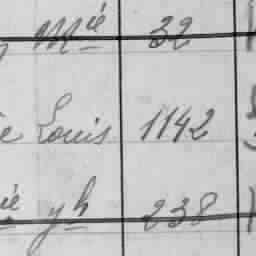 Mié 32
e Louis 1142
ié yh 238